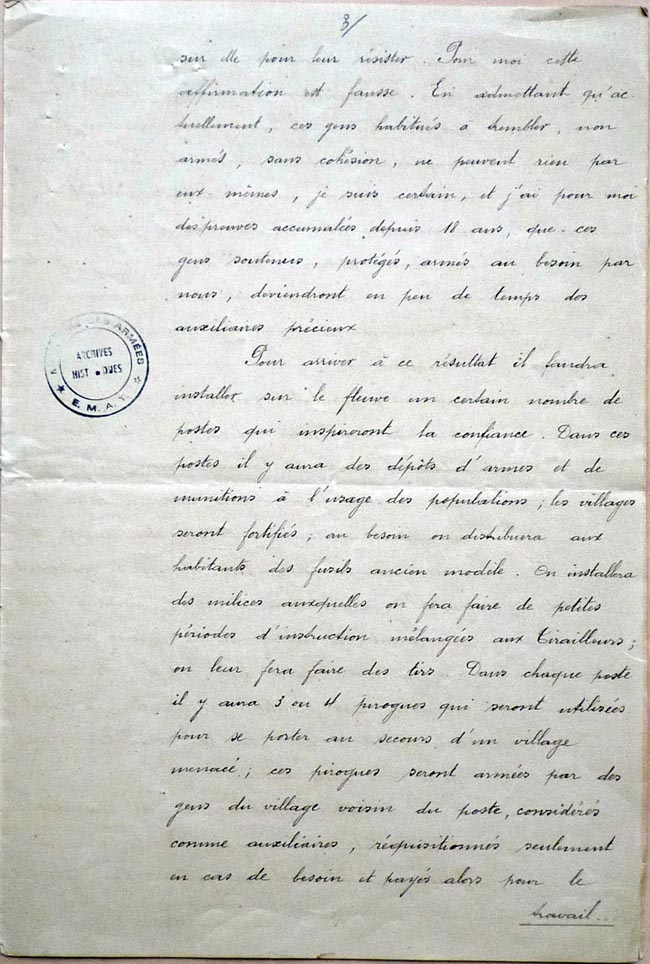 3/
sur elle pour leur résister. Pour moi cette
affirmation est fausse. En admettant qu'ac-
tuellement, ces gens habitués à trembler, non
armés, sans cohésion, ne peuvent rien par
eux-mêmes, je suis certain, et j'ai pour moi
des preuves accumulées depuis 18 ans, que ces
gens soutenus, protégés, armés au besoin par
nous, deviendront en peu de temps des
auxiliaires précieux
Pour arriver à ce résultat il faudra
installer sur le fleuve un certain nombre de
postes qui inspireront la confiance. Dans ces
postes il y aura des dépôts d'armes et de
munitions à l'usage des populations ; les villages
seront fortifiés ; au besoin on distribuera aux
habitants des fusils ancien modèle. On installera
des milices auxquelles on fera faire de petites
périodes d'instruction mélangées aux Tirailleurs ;
on leur fera faire des tirs. Dans chaque poste
il y aura 3 ou 4 pirogues qui seront utilisées
pour se porter au secours d'un village
menacé ; ces pirogues seront armées par des
gens du village voisin du poste, considérés
comme auxiliaires, réquisitionnés seulement
en cas de besoin et payés alors pour le
travail...
DES ARMÉES
ARCHIVES
HIST QUES
★ E. M. A. T. ★